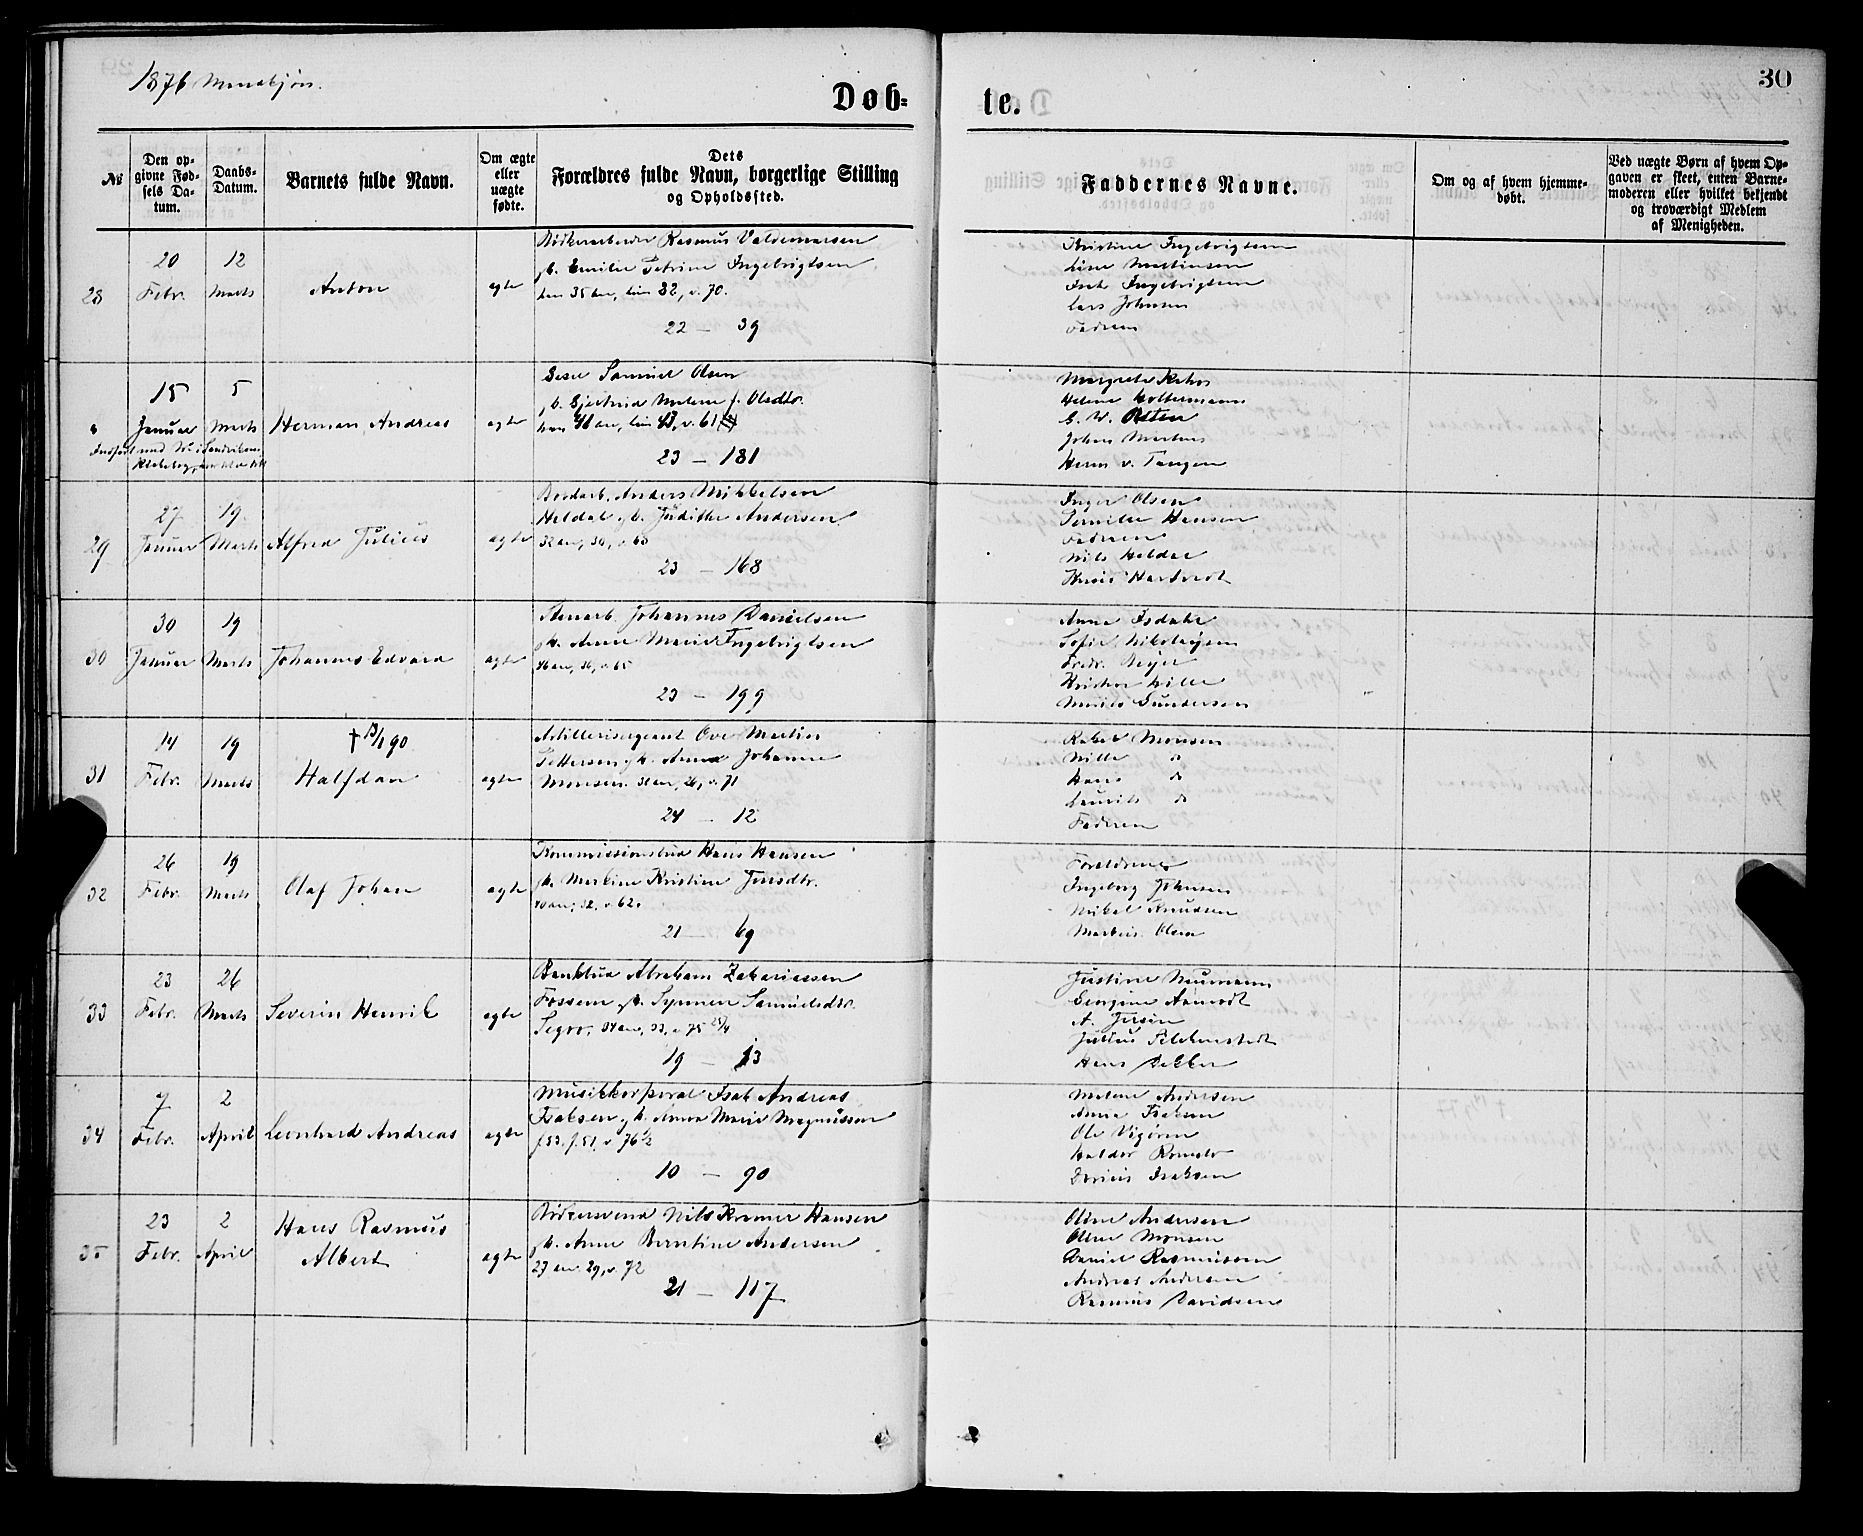 1876 Mandkjøn.
Døb-
te.
30
No
Den op-
givne Fød-
sels Da-
tum.
Daabs-
Datum.
Barnets fulde Navn.
Om ægte
eller
uægte
fødte.
Dets
Forældres fulde Navn, borgerlige Stilling
og Opholdssted.
Faddernes Navne.
Om og af hvem hjemme-
døbt.
Ved uægte Børn af hvem Op-
gaven er skeet, enten Barne-
moderen eller hvilket bekjendt
og troværdigt Medlem
af Menigheden.
28
20
Febr.
12
Marts
Anton
ægte
Bødkerarbeider Rasmus Valdemarsen
Emilie Petrine Ingebrigtsen
han 35 aar, hun 32, v. 70.
22 — 39
Kristine Ingebrigtsen
Line Martinsen
Isak Ingebrigtsen
Lars Johnsen
Faderen
15
Januar
5
Marts
Herman Andreas
ægte
Samuel Olsen
Malene f. Olsdtr.
han 41 aar, hun 43, v. 61
23 — 181
Margrete
Helene Holtermann
Johan Martens
Herm v. Tangen
29
27
Januar
19
Marts
Alfred Julius
ægte
Anders Mikkelsen
Heldal Judithe Andersen
32 aar, 30, v. 68
23 — 168
Inger Olsen
Pernille Hansen
Faderen
Nils Heldal
Hartvedt
30
30
Januar
19
Marts
Johannes Edvard
ægte
Stenarb. Johannes Danielsen
Anne Marie Ingebrigtsen
36 aar, 36, v. 65
23 — 199
Anna Isdahl
Sofie Nikolaysen
Fredr. Meyer
Kristian Wille
Gundersen
31
14
Febr.
19
Marts
† 13/1 90
Halfdan
ægte
Artillerisergeant Ove Martin
Pettersen Anna Johanne
Monsen. 31 aar, 26, v. 71
24 — 12
Rakel Monsen
Nille do
Hans do
Laurits do
Faderen
32
26
Febr.
19
Marts
Olaf Johan
ægte
Kommissionsbud Hans Hansen
Martine Kristine Jensdtr.
40 aar, 32, v. 62.
21 — 69
Forældrene
Ingeborg Johnsen
Mikal Knudsen
Martin Olsen
33
23
Febr.
26
Marts
Severin Henrik
ægte
Bankbud Abraham Zakariassen
Fossem Synneve Samuelsdtr.
34 aar, 33, v. 75
19 — 13
Justine Neumann
Georgine Aamodt
A. Jersin
Julius
Hans Dekker
34
7
Febr.
2
April
Leonhard Andreas
ægte
Musikkorporal Isak Andreas
Isaksen Anna Marie Magnussen
f. 53. f. 51, v. 76 ½
10 — 90
Malene Andersen
Anna Isaksen
Ole Vigøren
Haldor
Isaksen
35
23
Febr.
2
April
Hans Rasmus
Albert
ægte
Bødkersvend Nils Kramer Hansen
Anne Berntine Andersen
27 aar. 29, v. 72
21 — 117
Oline Andersen
Oline Monsen
Daniel Rasmussen
Andreas Andersen
Rasmus Davidsen